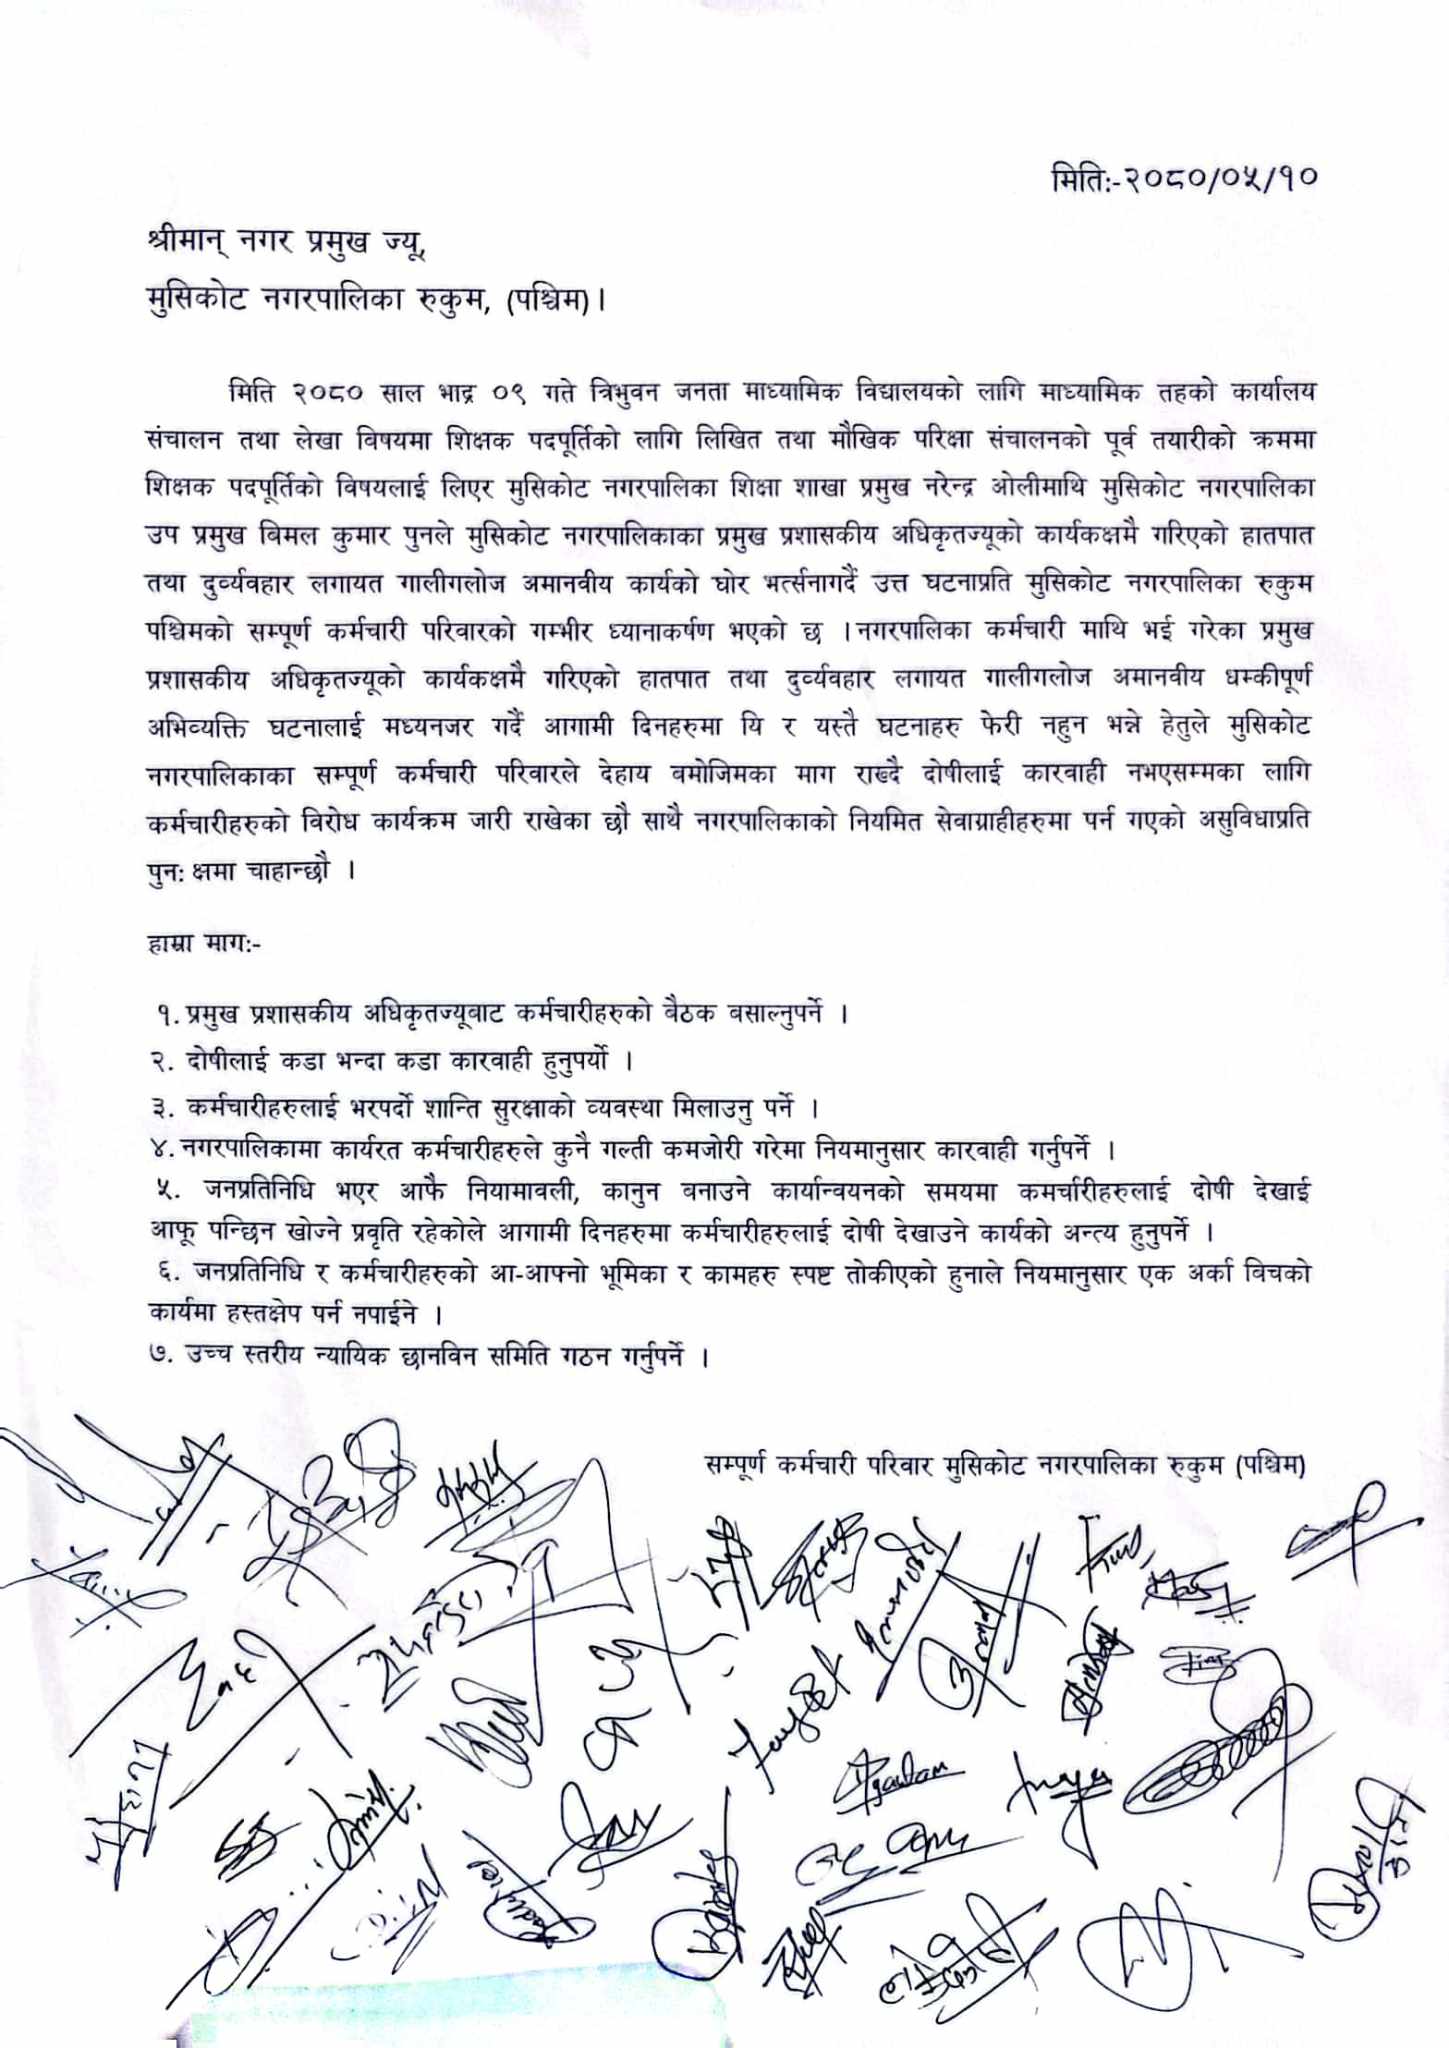 मितिः-२०८०/०५/१०
श्रीमान् नगर प्रमुख ज्यू,
मुसिकोट नगरपालिका रुकुम, (पश्चिम)।
मिति २०८० साल भाद्र ०९ गते त्रिभुवन जनता माध्यामिक विद्यालयको लागि माध्यामिक तहको कार्यालय
संचालन तथा लेखा विषयमा शिक्षक पदपूर्तिको लागि लिखित तथा मौखिक परिक्षा संचालनको पूर्व तयारीको क्रममा
शिक्षक पदपूर्तिको विषयलाई लिएर मुसिकोट नगरपालिका शिक्षा शाखा प्रमुख नरेन्द्र ओलीमाथि मुसिकोट नगरपालिका
उप प्रमुख बिमल कुमार पुनले मुसिकोट नगरपालिकाका प्रमुख प्रशासकीय अधिकृतज्यूको कार्यकक्षमै गरिएको हातपात
तथा दुर्व्यवहार लगायत गालीगलोज अमानवीय कार्यको घोर भर्त्सनागर्दै उत्त घटनाप्रति मुसिकोट नगरपालिका रुकुम
पश्चिमको सम्पूर्ण कर्मचारी परिवारको गम्भीर ध्यानाकर्षण भएको छ । नगरपालिका कर्मचारी माथि भई गरेका प्रमुख
प्रशासकीय अधिकृतज्यूको कार्यकक्षमै गरिएको हातपात तथा दुर्व्यवहार लगायत गालीगलोज अमानवीय धम्कीपूर्ण
अभिव्यक्ति घटनालाई मध्यनजर गर्दै आगामी दिनहरुमा यि र यस्तै घटनाहरु फेरी नहुन भन्ने हेतुले मुसिकोट
नगरपालिकाका सम्पूर्ण कर्मचारी परिवारले देहाय बमोजिमका माग राख्दै दोषीलाई कारवाही नभएसम्मका लागि
कर्मचारीहरुको विरोध कार्यक्रम जारी राखेका छौ साथै नगरपालिकाको नियमित सेवाग्राहीहरुमा पर्न गएको असुविधाप्रति
पुनः क्षमा चाहान्छौ ।
हाम्रा मागः-
१. प्रमुख प्रशासकीय अधिकृतज्यूबाट कर्मचारीहरुको बैठक बसाल्नुपर्ने ।
२. दोषीलाई कडा भन्दा कडा कारवाही हुनुपर्यो ।
३. कर्मचारीहरुलाई भरपर्दो शान्ति सुरक्षाको व्यवस्था मिलाउनु पर्ने ।
४. नगरपालिकामा कार्यरत कर्मचारीहरुले कुनै गल्ती कमजोरी गरेमा नियमानुसार कारवाही गर्नुपर्ने ।
५. जनप्रतिनिधि भएर आफै नियामावली, कानुन बनाउने कार्यान्वयनको समयमा कमर्चारीहरुलाई दोषी देखाई
आफू पन्छिन खोज्ने प्रवृति रहेकोले आगामी दिनहरुमा कर्मचारीहरुलाई दोषी देखाउने कार्यको अन्त्य हुनुपर्ने ।
६. जनप्रतिनिधि र कर्मचारीहरुको आ-आफ्नो भूमिका र कामहरु स्पष्ट तोकीएको हुनाले नियमानुसार एक अर्का बिचको
कार्यमा हस्तक्षेप पर्न नपाईने ।
७. उच्च स्तरीय न्यायिक छानविन समिति गठन गर्नुपर्ने ।
सम्पूर्ण कर्मचारी परिवार मुसिकोट नगरपालिका रुकुम (पश्चिम)